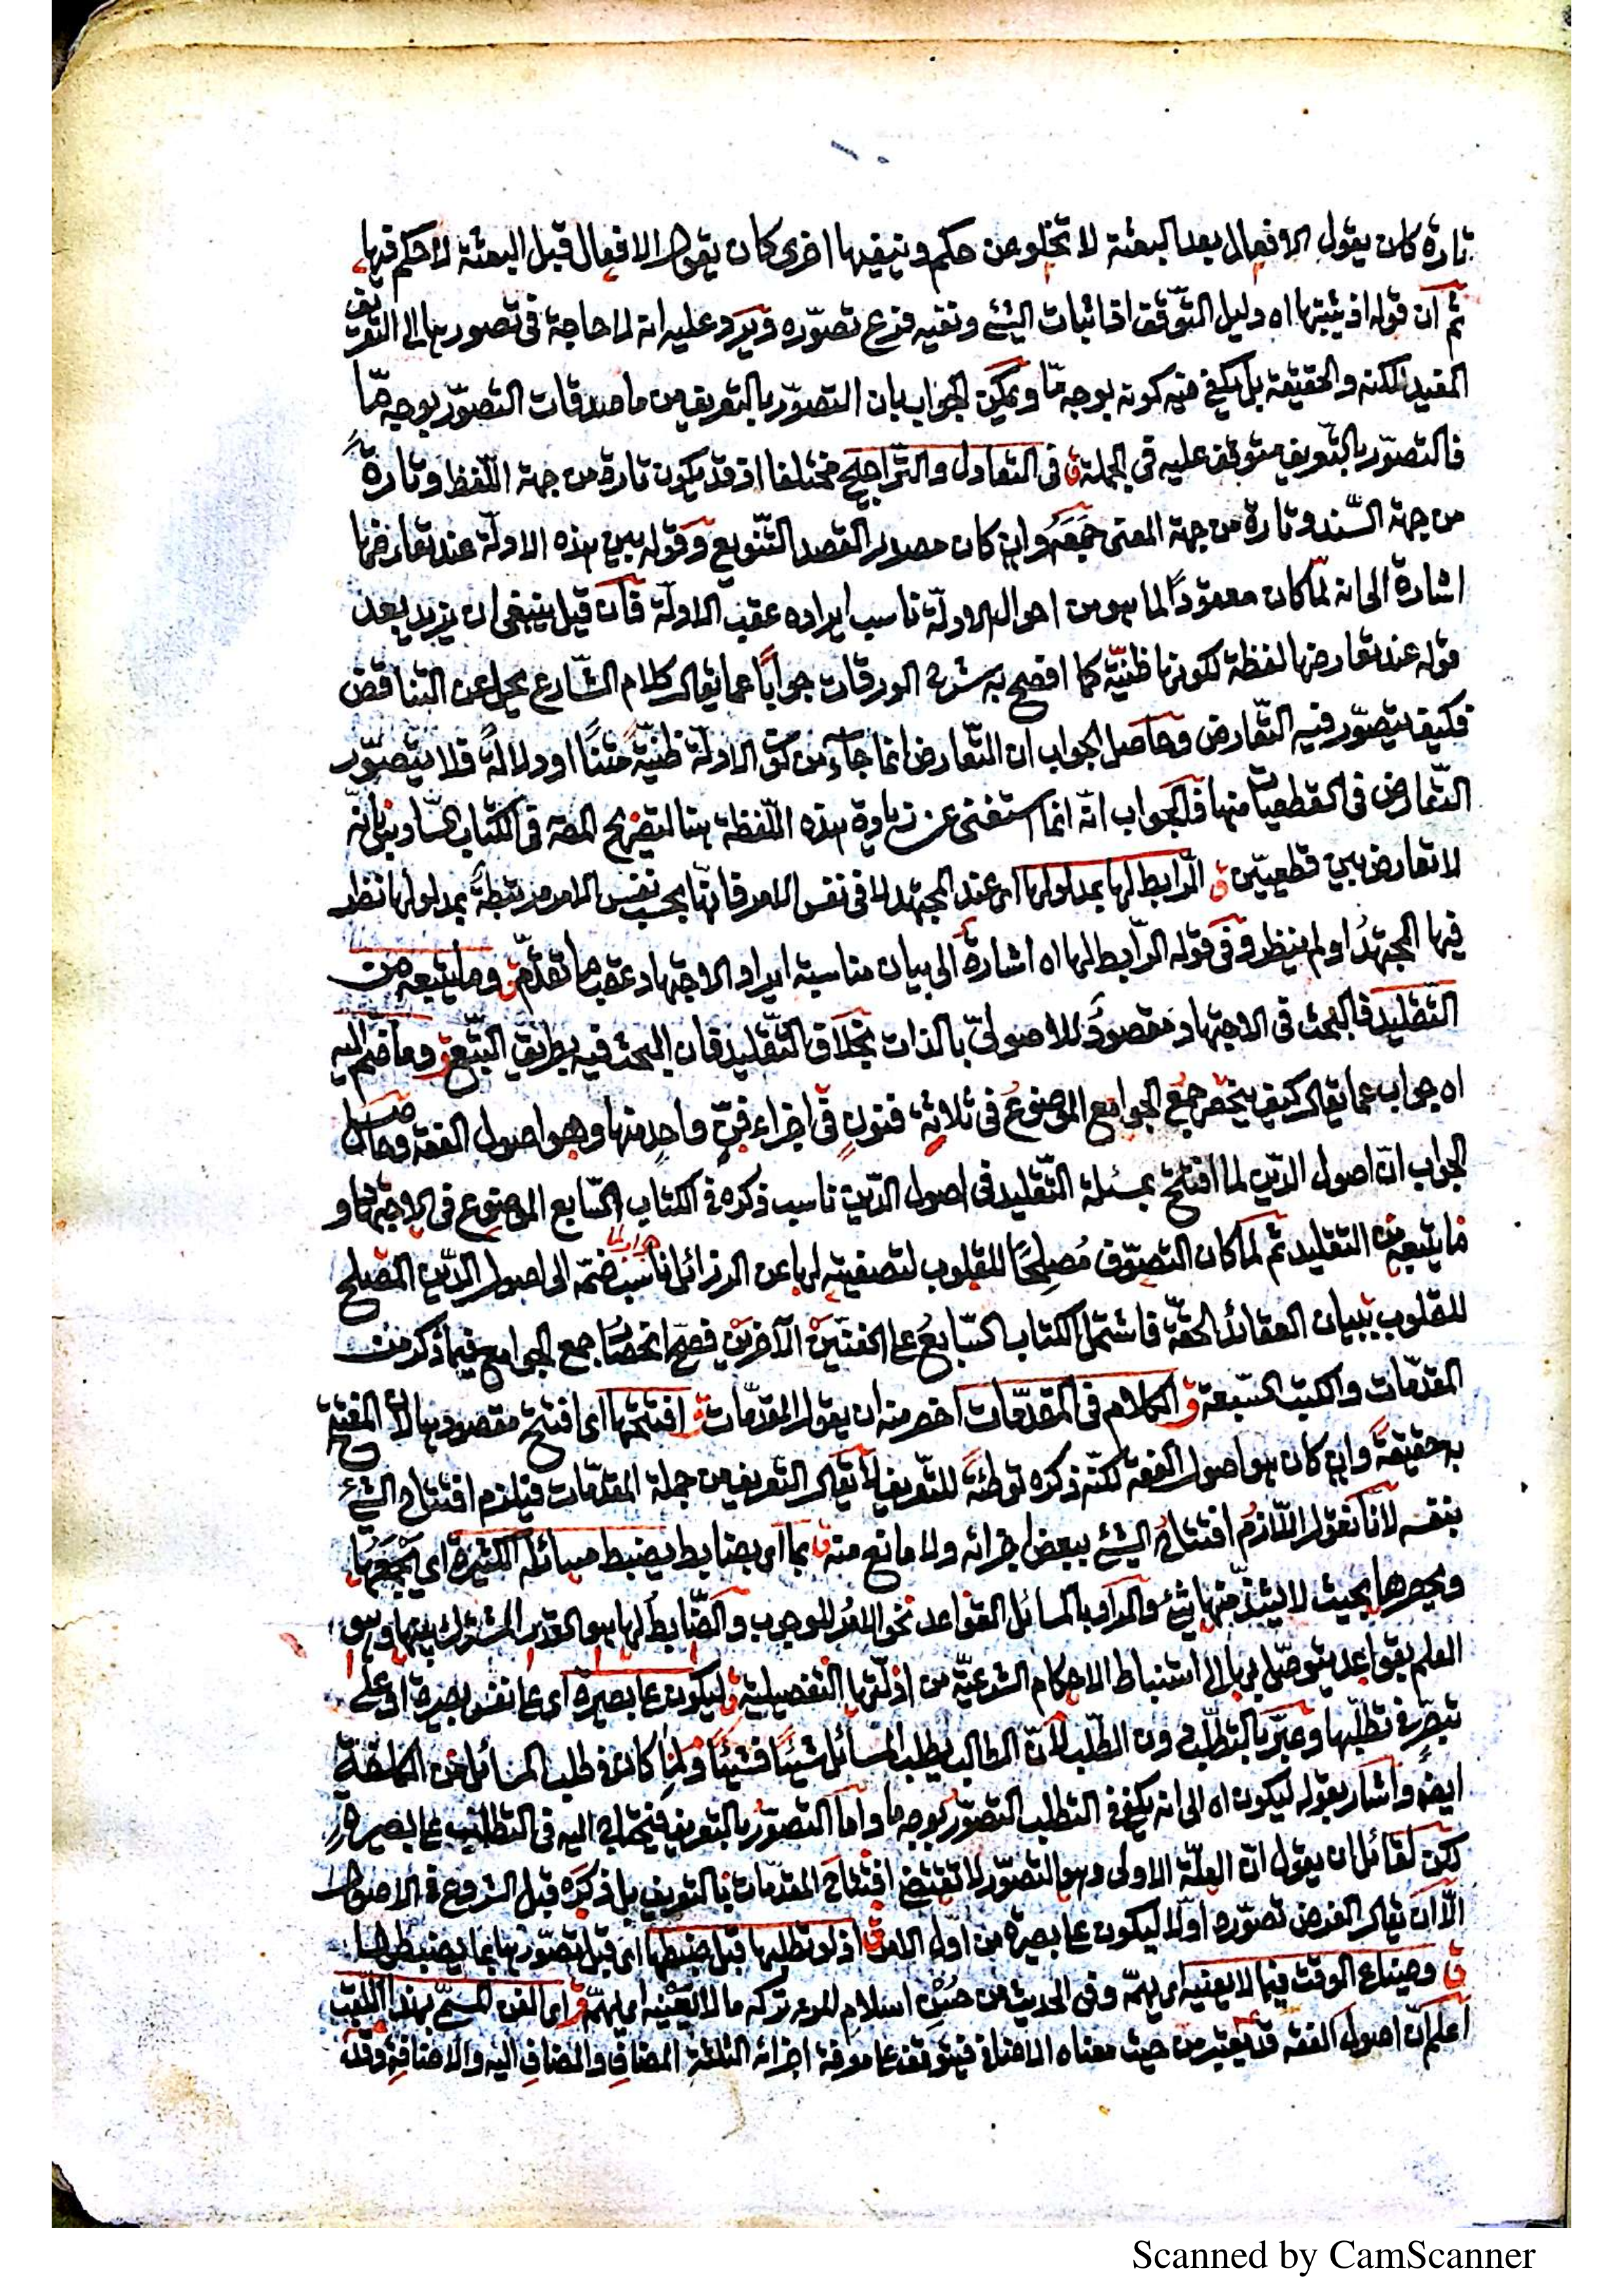 تارة كان يقول الافعال بعد البعثة لا تخلو عن حكم وينفيها اخرى كان يقول الافعال قبل البعثة لا حكم فيها
ثم ان قوله اذ يثبتها اه دليل التوقف اذ اثبات الشئ ونفيه فرع تصوّره ويرد عليه انه لا حاجة فى تصورها الى التعريف
المفيد للكنه والحقيقة بل يكفى فيه كونه بوجه مّا ويمكن الجواب بان التصوّر بالتعريف من ما صدقات التصوّر بوجه مّا
فالتصوّر بالتعريف متوقف عليه فى الجملة ق فى التعادل والتّراجيح مختلفا اذ قد يكون تارة من جهة اللّفظ وتارةً
من جهة السّند وتارة من جهة المعنى جَمَعَهُ وان كان مصدرا لقصد التّنويع وقوله بين هذه الادلّة عند تعارضها
اشارة الى انه لمّا كان معقودًا لما هو من احوال الادلّة ناسب ايراده عقيب الادلّة فان قيل ينبغى ان يزيد بعد
قوله عند تعارضها لفظة لكونها ظنيّة كما افصح به شرح الورقات جوابًا عما يقال كلام الشّارع يجل عن التناقض
فكيف يتصوّر فيه التّعارض وحاصل الجواب ان التّعارض انما جآء من كون الادلّة ظنيّةً متنًا او دلالةً فلا يتصوّر
التّعارض فى القطعيات منها فالجواب انّه انما استغنى عن زيادة هذه اللّفظة هنا لتصريح المصه فى الكتاب السّادس بانّه
لا تعارض بين قطعيّين ق الرّابط لها بمدلولها اى عند المجتهد لا فى نفس الامر فانّها بحسب نفس الامر مرتبطةٌ بمدلولها نظر
فيها المجتهدُ او لم ينظر وفى قوله الرّابط لها اه اشارةٌ الى بيان مناسبة ايراد الاجتهاد عقب ما تقدّم ق وما يتبعه من
التّقليد فالبحث فى الاجتهاد مقصودٌ للاصولىّ بالذات بخلاف التّقليد فان البحث فيه بطريق التّبع ق وما ضمّ اليه
اه جواب عما يقال كيف ينحصر جمع الجوامع الموضوعُ فى ثلاثةِ فنونٍ فى اجزاء فنٍّ واحدٍ منها وهو اصول الفقه وحاصل
الجواب انّ اصول الدّين لما افتتح بمسئلة التّقليد فى اصول الدّين ناسب ذكره فى الكتاب السّابع الموضوع فى الاجتهاد و
ما يتبعه من التقليد ثم لما كان التصوّف مُصلِحًا للقلوب لتصفيته لها عن الرزائل ناسب ضمّه الى اصول الدّين المصلح
للقلوب ببيان العقائد الحقّة فاشتمل الكتاب السّابعُ على الفنّين الآخرين فصحّ انحصار جمع الجوامع فيما ذكر من
المقدّمات والكتب السّبعة ق الكلام فى المقدّمات اخصر منه ان يقول المقدّمات ق افتتحها اى افتتح مقصودها لانّ المفتتح
به حقيقةً وان كان هو اصول الفقه لكنّه ذكره توطئةً للتّعريف لا يقال التعريف من جملة المقدّمات فيلزم افتتاح الشئ
بنفسه لانّا نقول اللّازمُ افتتاح الشئ ببعض اجزائه ولا مانع منه ق بما اى بضابط يضبط مسائله الكثيرة اى يَجْمَعُها
ويحصرها بحيث لا يشذّ منها شئ والمراد بالمسائل القواعد نحو الامرُ للوجوب والضّابطُ لها هو القدر المشترك بينها وهو
العلم بقواعد يتوصّل بها الى استنباط الاحكام الشرعيّة من ادلّتها التفصيلية ق ليكون على بصيرة اى على نفس بصيرة او على
تبصّر فى تطلّبها وعبّر بالتطلّب دون الطّلب لانّ الطالب يطلب المسائل شيئًا فشيئًا كان فى طلب المسائل من الكلفة
ايضو واشار بقوله ليكون اه الى انه يكفى فى التطلب التصوّر بوجه ما وامّا التصوّرُ بالتعريف فيحتاج اليه فى التطلّب على بصيرة
لكن لقائل ان يقول انّ العلّة الاولى وهو التصوّر لا تقتضى افتتاح المقدّمات بالتعريف بل ذكره قبل الشروع فى الاصول
الّا ان يقال الغرض تصوّره اولا ليكون على بصيرة من اوّل الامر ق اذ لو تطلبها قبل ضبطها اى قبل تصوّرها بما يضبطها
ق وضياع الوقت فيما لا يعنيه اى يهمّه وفى الحديث من حُسْنِ اسلام المرء تركه ما لا يَعْنيه اى يهمّه ق اى الفن المسمّى بهذا اللّقب
اعلم انّ اصول الفقه قد يعتبر من حيث معناه الاضافى فيتوقف على معرفة اجزائه الثلثة المضافِ والمضافِ اليه والاضافةِ وقد
Scanned by CamScanner